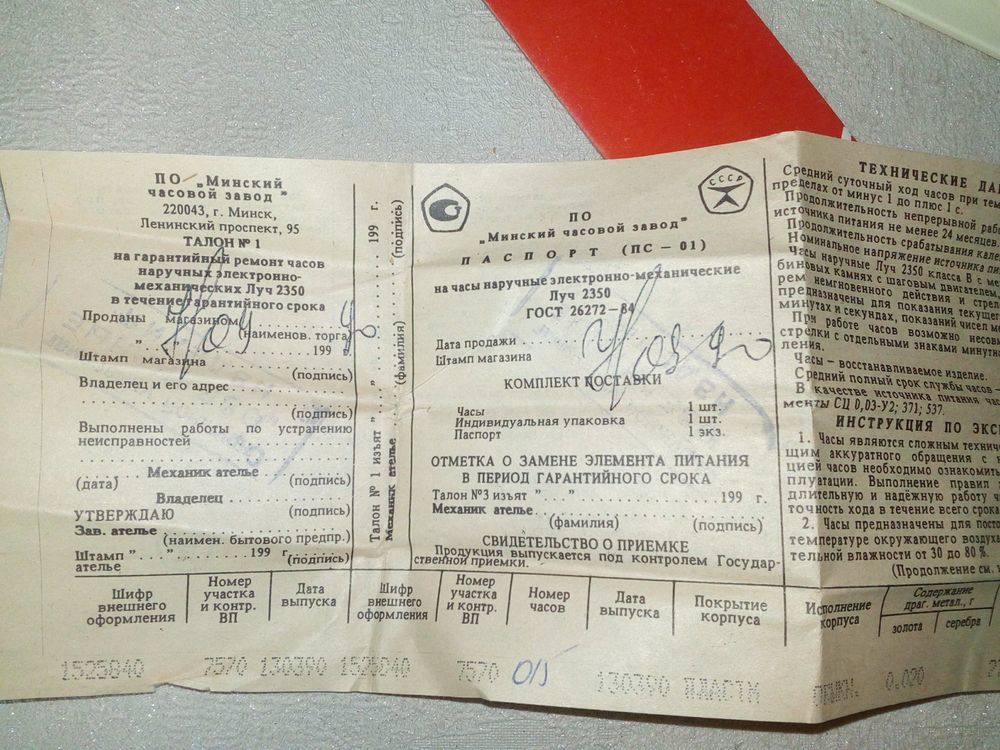 ПО „Минский
часовой завод"
220043, г. Минск,
Ленинский проспект, 95
ТАЛОН № 1
на гарантийный ремонт часов
наручных электронно-
механических Луч 2350
в течение гарантийного срока
Проданы магазином
(наименов. торга)
" " 199
Штамп магазина
(подпись)
Владелец и его адрес
(подпись)
Выполнены работы по устранению
неисправностей
Механик ателье
(дата) (подпись)
Владелец
УТВЕРЖДАЮ (подпись)
Зав. ателье
(наимен. бытового предпр.)
Штамп " " 199 г.
ателье (подпись)
Шифр внешнего оформления
Номер участка и контр. ВП
Дата выпуска
1525840 7570 130390
Талон № 1 изъят " " 199 г.
Механик ателье (фамилия) (подпись)
СССР
ПО
„Минский часовой завод"
ПАСПОРТ (ПС — 01)
на часы наручные электронно-механические
Луч 2350
ГОСТ 26272 — 84
Дата продажи
Штамп магазина
03 90
КОМПЛЕКТ ПОСТАВКИ
Часы 1 шт.
Индивидуальная упаковка 1 шт.
Паспорт 1 экз.
ОТМЕТКА О ЗАМЕНЕ ЭЛЕМЕНТА ПИТАНИЯ
В ПЕРИОД ГАРАНТИЙНОГО СРОКА
Талон №3 изъят " " 199 г.
Механик ателье
(фамилия) (подпись)
СВИДЕТЕЛЬСТВО О ПРИЕМКЕ
Продукция выпускается под контролем Государ-
ственной приемки.
Шифр внешнего оформления
Номер участка и контр. ВП
Номер часов
Дата выпуска
Покрытие корпуса
1525840 7570 015 130390
ТЕХНИЧЕСКИЕ ДА
Средний суточный ход часов при тем
пределах от минус 1 до плюс 1 с.
Продолжительность непрерывной рабо
источника питания не менее 24 месяцев
Продолжительность срабатывания кале
Номинальное напряжение источника пи
Часы наручные Луч 2350 класса В с ме
биновых камнях с шаговым двигателем,
рем немгновенного действия и стрел
предназначены для показания текущег
минутах и секундах, показаний чисел м
При работе часов возможно несов
стрелки с отдельными знаками минутн
ления.
Часы — восстанавливаемое изделие.
Средний полный срок службы часов
В качестве источника питания час
менты СЦ 0,03-У2; 371; 537.
ИНСТРУКЦИЯ ПО ЭКС
1. Часы являются сложным технич
щим аккуратного обращения с н
цией часов необходимо ознакомить
плуатации. Выполнение правил
длительную и надёжную работу ч
точность хода в течение всего срока
2. Часы предназначены для посто
температуре окружающего воздуха
тельной влажности от 30 до 80 %.
(Продолжение см.
Исполнение корпуса
Содержание драг. метал., г
золота серебра
0.020